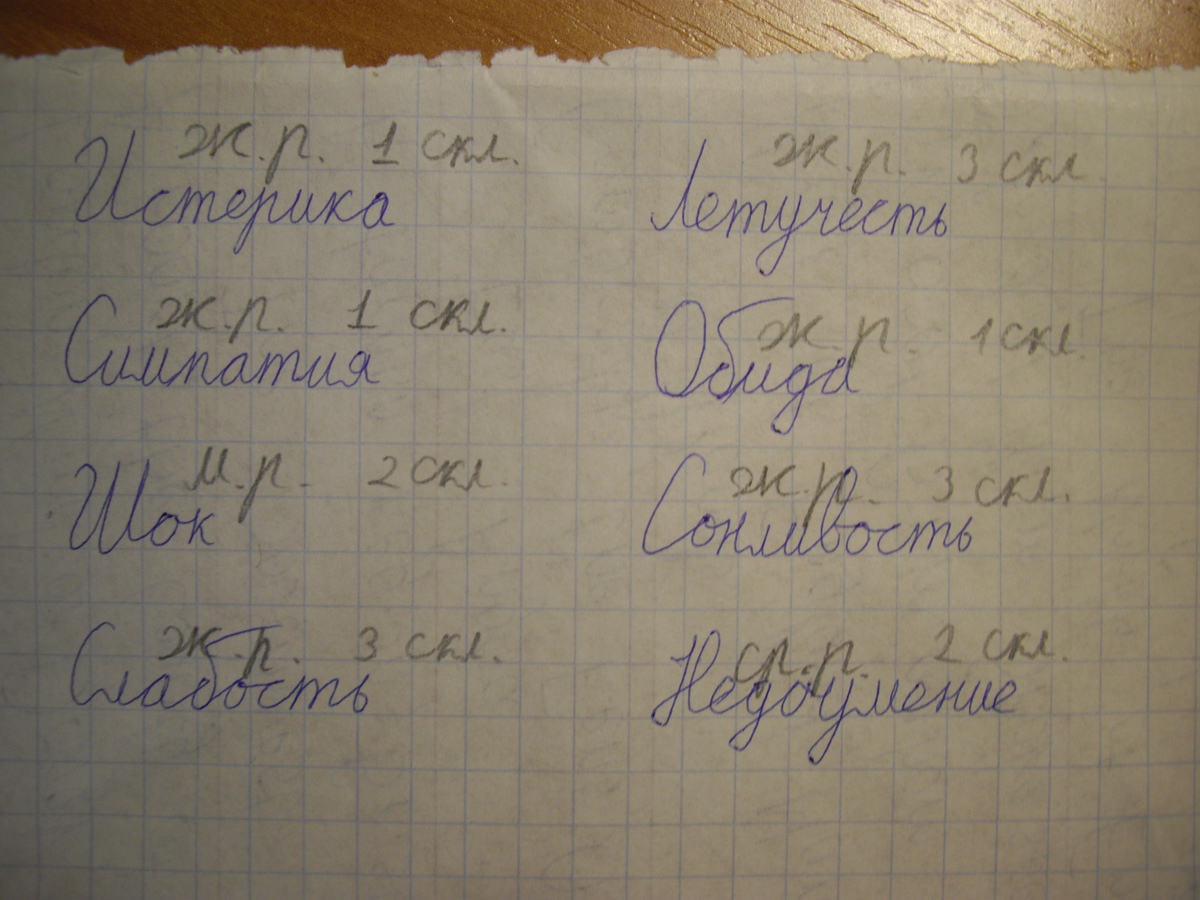 ж.р. 1 скл.
Истерика
ж.р. 1 скл.
Симпатия
м.р. 2 скл.
Шок
ж.р. 3 скл.
Слабость
ж.р. 3 скл.
Летучесть
ж.р. 1 скл.
Обида
ж.р. 3 скл.
Сонливость
ср.р. 2 скл.
Недоумение